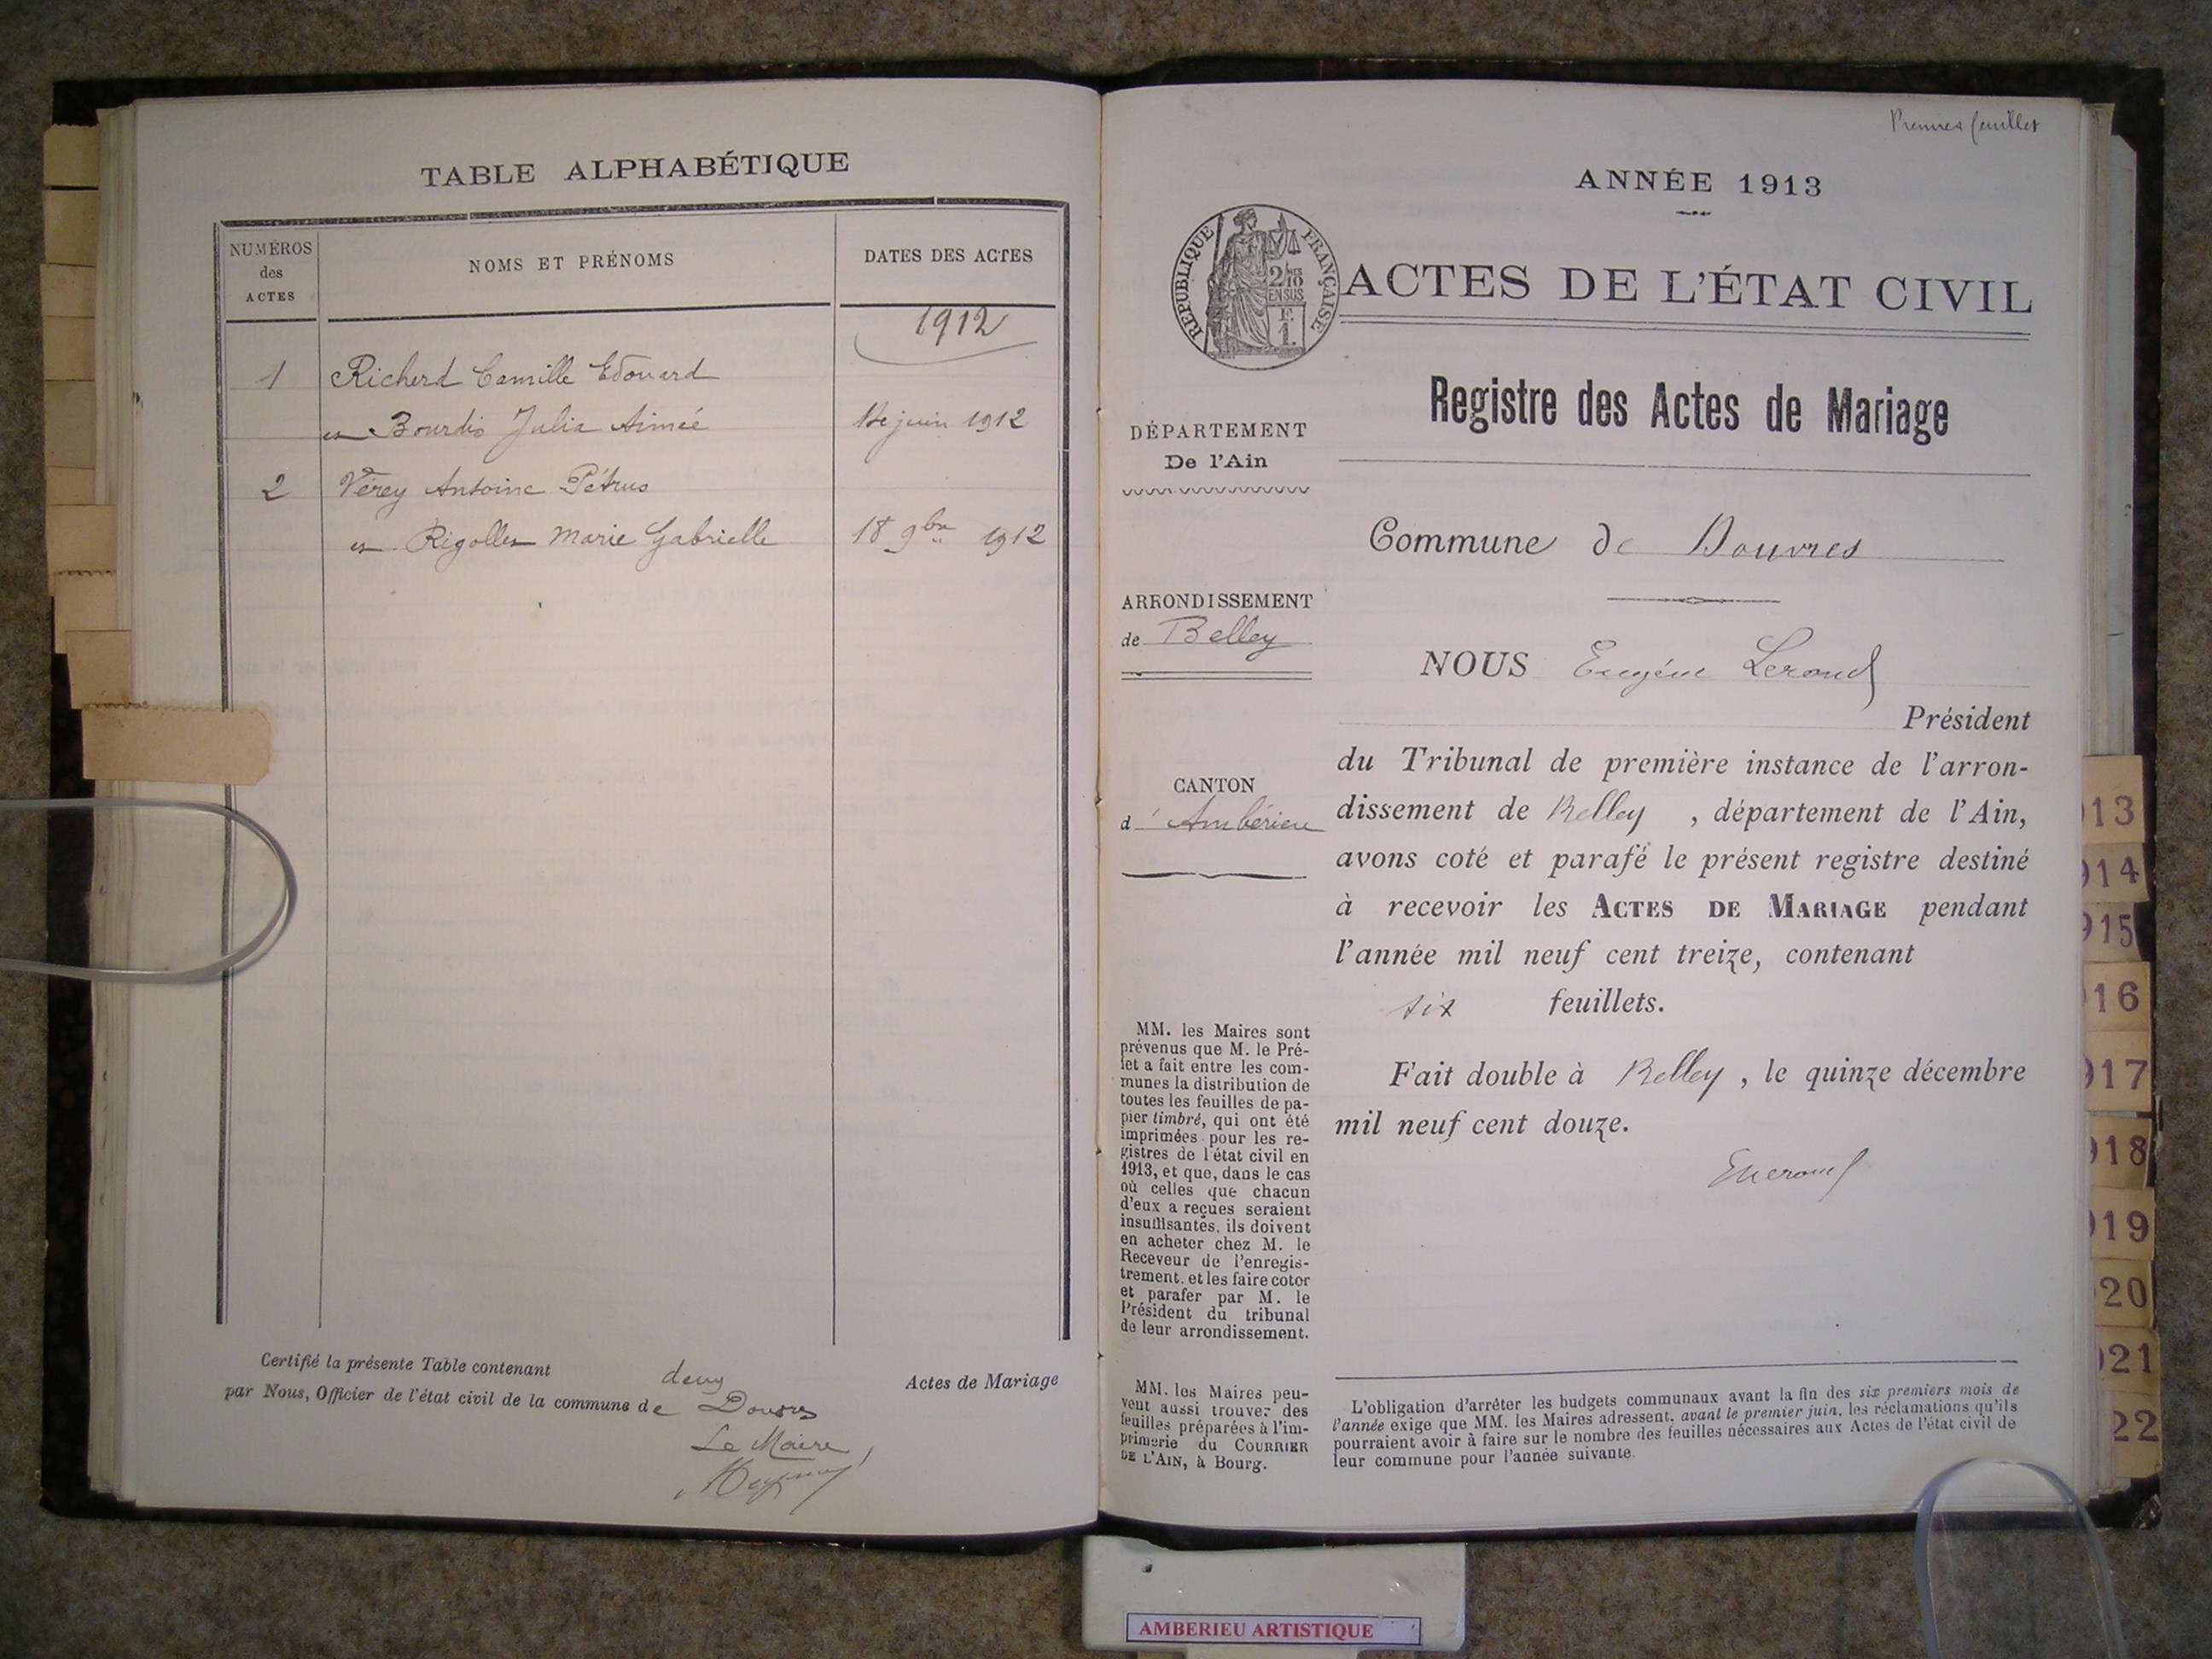 TABLE ALPHABÉTIQUE
NUMÉROS
des
ACTES
NOMS ET PRÉNOMS
DATES DES ACTES
1912
1 Richerd Camille Edouard
et Bourdis Julia Aimée juin 1912
2 Vérey Antoine Pétrus
et Rigollet Marie Gabrielle 18 9bre 1912
Certifié la présente Table contenant deux Actes de Mariage
par Nous, Officier de l'état civil de la commune de Douvres
Le Maire
Premier feuillet
ANNÉE 1913
RÉPUBLIQUE FRANÇAISE
2/10
EN SUS
F.
1.
ACTES DE L'ÉTAT CIVIL
Registre des Actes de Mariage
DÉPARTEMENT
De l'Ain
ARRONDISSEMENT
de Belley
CANTON
d'Ambérieu
MM. les Maires sont
prévenus que M. le Pré-
fet a fait entre les com-
munes la distribution de
toutes les feuilles de pa-
pier timbré, qui ont été
imprimées pour les re-
gistres de l'état civil en
1913, et que, dans le cas
où celles que chacun
d'eux a reçues seraient
insuffisantes, ils doivent
en acheter chez M. le
Receveur de l'enregis-
trement, et les faire coter
et parafer par M. le
Président du tribunal
de leur arrondissement.
MM. les Maires peu-
vent aussi trouver des
feuilles préparées à l'im-
primerie du COURRIER
DE L'AIN, à Bourg.
Commune de Douvres
NOUS Eugène Leroud
Président
du Tribunal de première instance de l'arron-
dissement de Belley, département de l'Ain,
avons coté et parafé le présent registre destiné
à recevoir les ACTES DE MARIAGE pendant
l'année mil neuf cent treize, contenant
six feuillets.
Fait double à Belley, le quinze décembre
mil neuf cent douze.
L'obligation d'arrêter les budgets communaux avant la fin des six premiers mois de
l'année exige que MM. les Maires adressent, avant le premier juin, les réclamations qu'ils
pourraient avoir à faire sur le nombre des feuilles nécessaires aux Actes de l'état civil de
leur commune pour l'année suivante.
13
914
915
16
917
918
919
20
921
22
AMBERIEU ARTISTIQUE